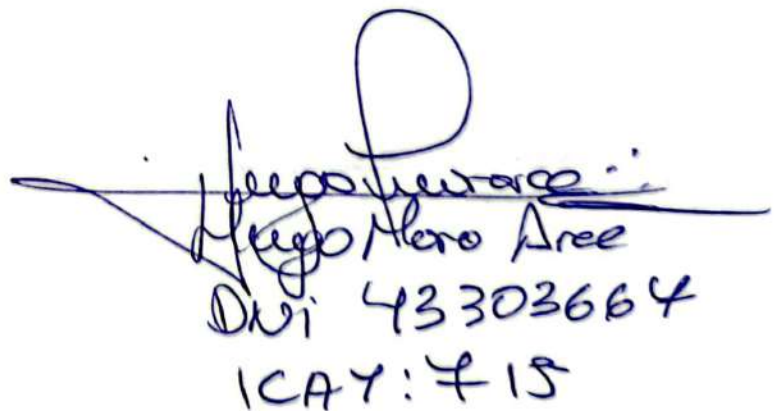 Hugo Moro Arce
DNi 43303664
ICAY: 715